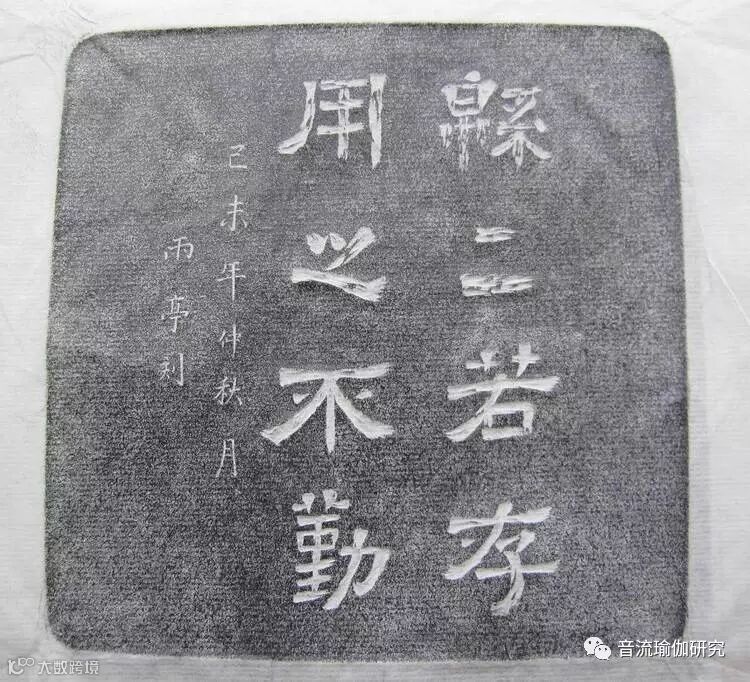 緜二若存
用之不勤
己未年仲秋月
雨亭刻
音流瑜伽研究
大数跨境